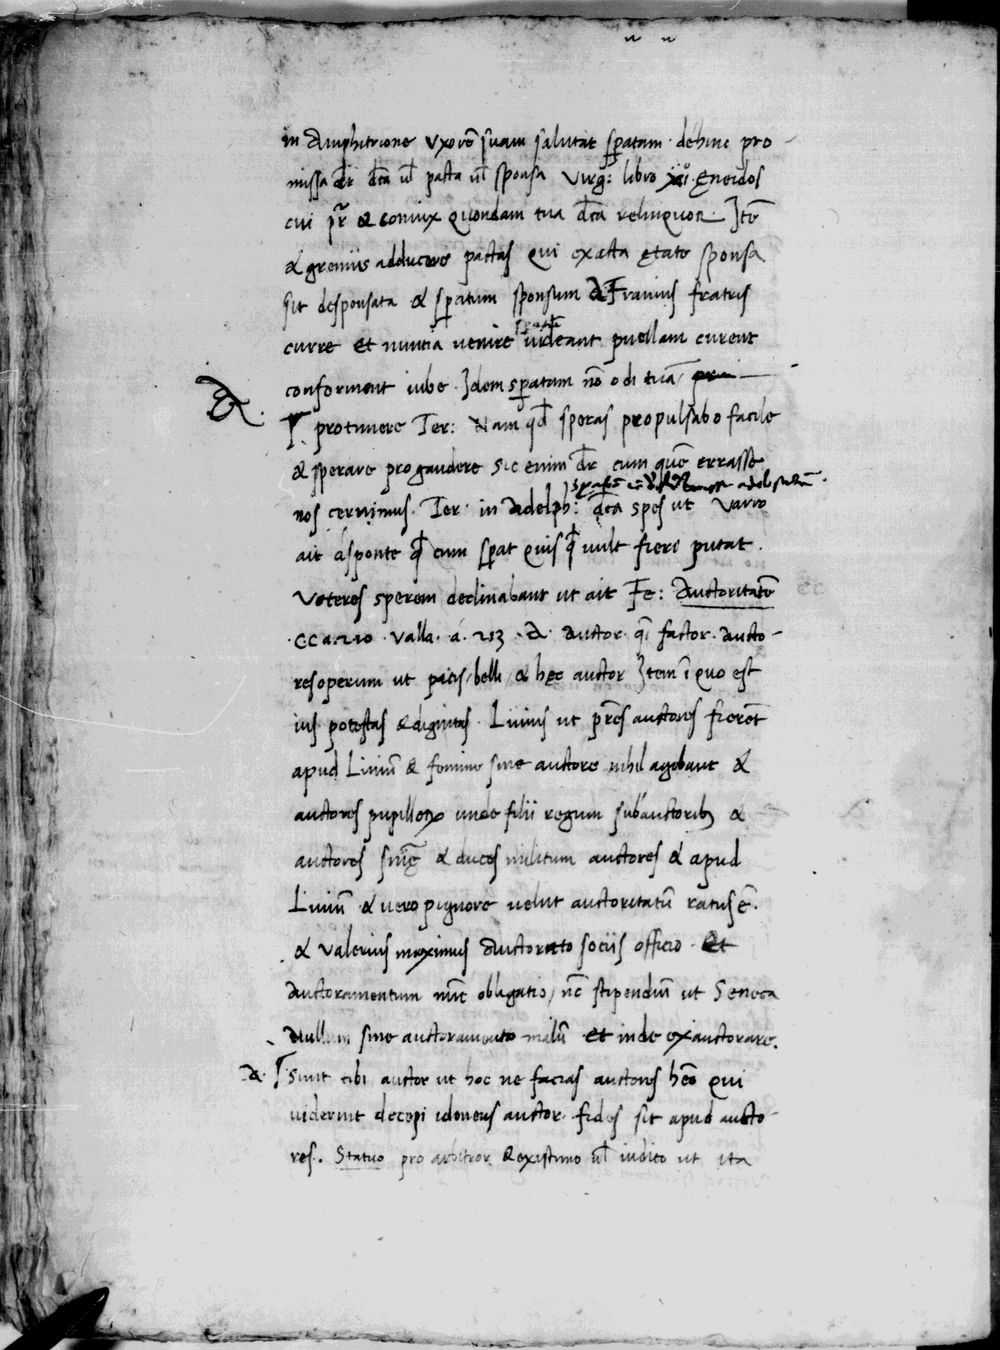 in Amphitrione Uxorē suam salutat spatam. dehinc pro-
missa dr̄ dcā ul̄ pacta ul̄ sponsa Virg: libro Eneidos
cui pr̄ & coniux quondam tua dcā relinquor Itē
& gremiis adducere pactas qui exacta etate sponsa
sit desponsata & spatum sponsum Afranius fratris
curre et nuntia venire ut videant puellam curent
conforment iube. Idem spatam nō odi tuā
A.
protimere Ter: Nam qd̄ speras propulsabo facile
& sperare pro gaudere sic enim dr̄ cum quē errasse
nos cernimus. Ter. in Adelph: dcā spes ut Varro
ait á sponte qd̄ cum sperat quis qd̄ vult fieri putat.
Veteres sperem declinabant ut ait Fe: Auctoritatē
.CC a. 210. Valla. á. 213. A. Auctor. qī factor. aucto-
res operum ut pacis / belli / & hec auctor Item ī quo est
ius potestas & dignitas. Livius ut pr̄es auctores fierēt
apud Liviū & femine sine auctore nihil agebant &
auctores pupillorū unde filii regum sub auctorib; &
auctores & duces militum auctores & apud
Liviū & vero pignore velut auctoritatū ratus ē.
. & Valerius maximus Auctorato sociis officio. Et
Auctoramentum nūc obligatio / nc̄ stipendiū ut Seneca
Nullum sine auctoramento malū et inde exauctorare.
A. Sunt tibi auctor ut hoc ne facias auctores hēo qui
viderint decepi idoneus auctor. fides sit apud aucto-
res. Statuo pro arbitror & existimo ul̄ iudico ut ita